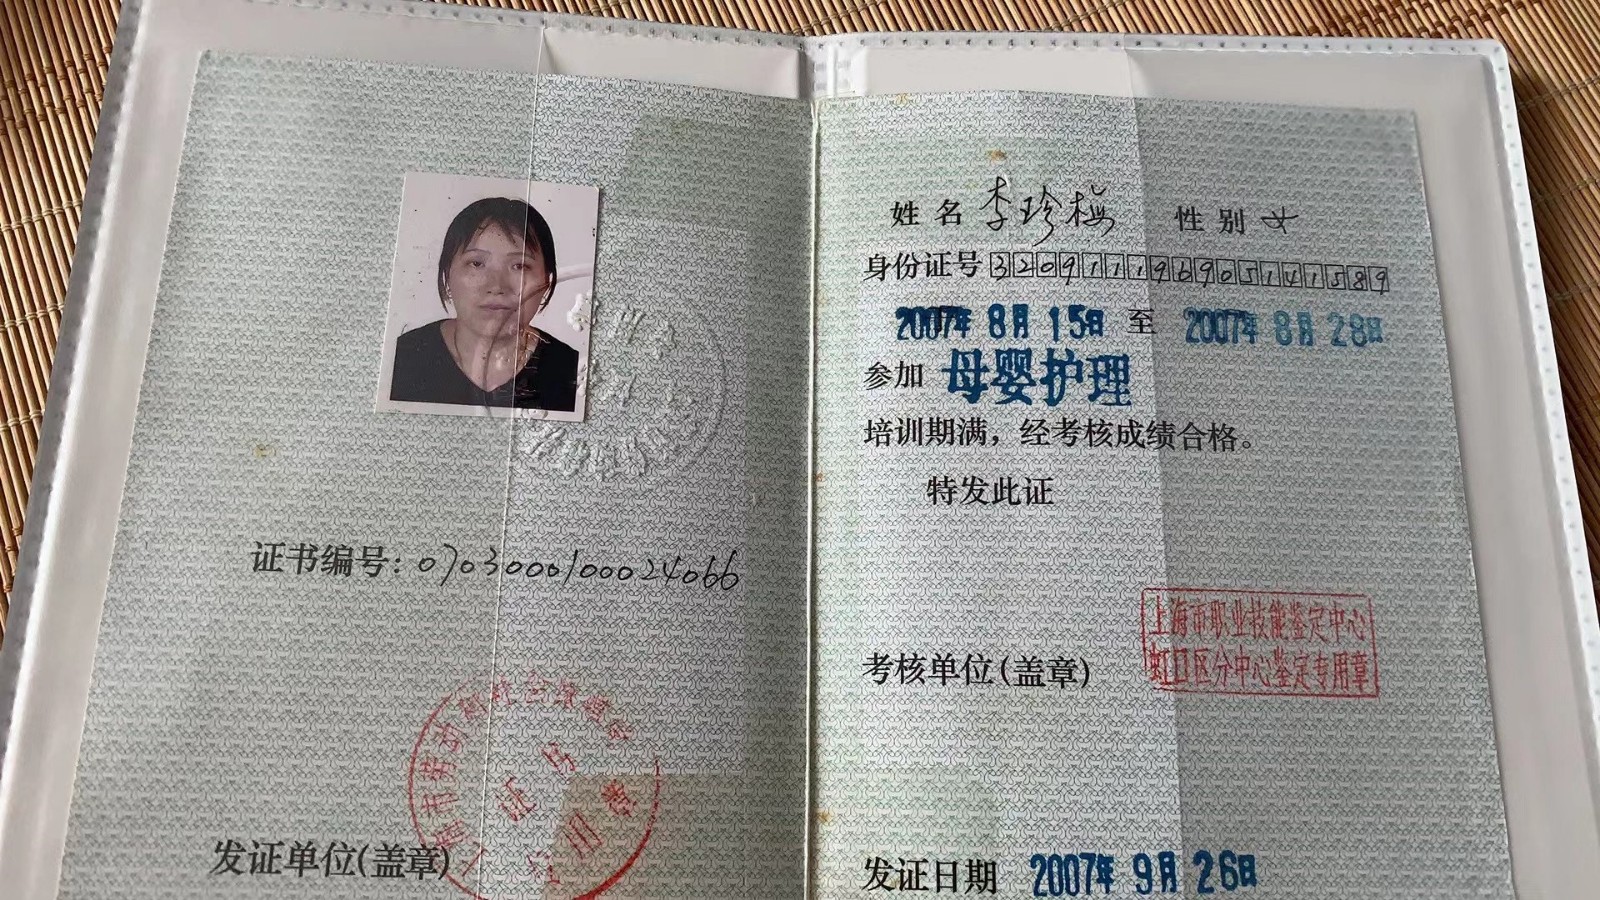 证书编号：070300010002４066
上海市劳动和社会保障局
证书
培训章
发证单位(盖章)
姓名 李珍梅 性别 女
身份证号 320911196905141589
2007年8月15日 至 2007年8月28日
参加 母婴护理
培训期满，经考核成绩合格。
特发此证
上海市职业技能鉴定中心
虹口区分中心鉴定专用章
考核单位(盖章)
发证日期 2007年9月26日